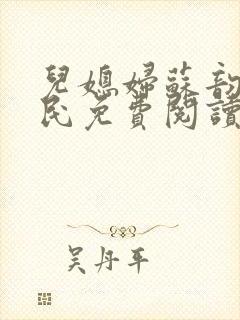 兒媳婦蘇韵
民免費閱讀
吴丹平